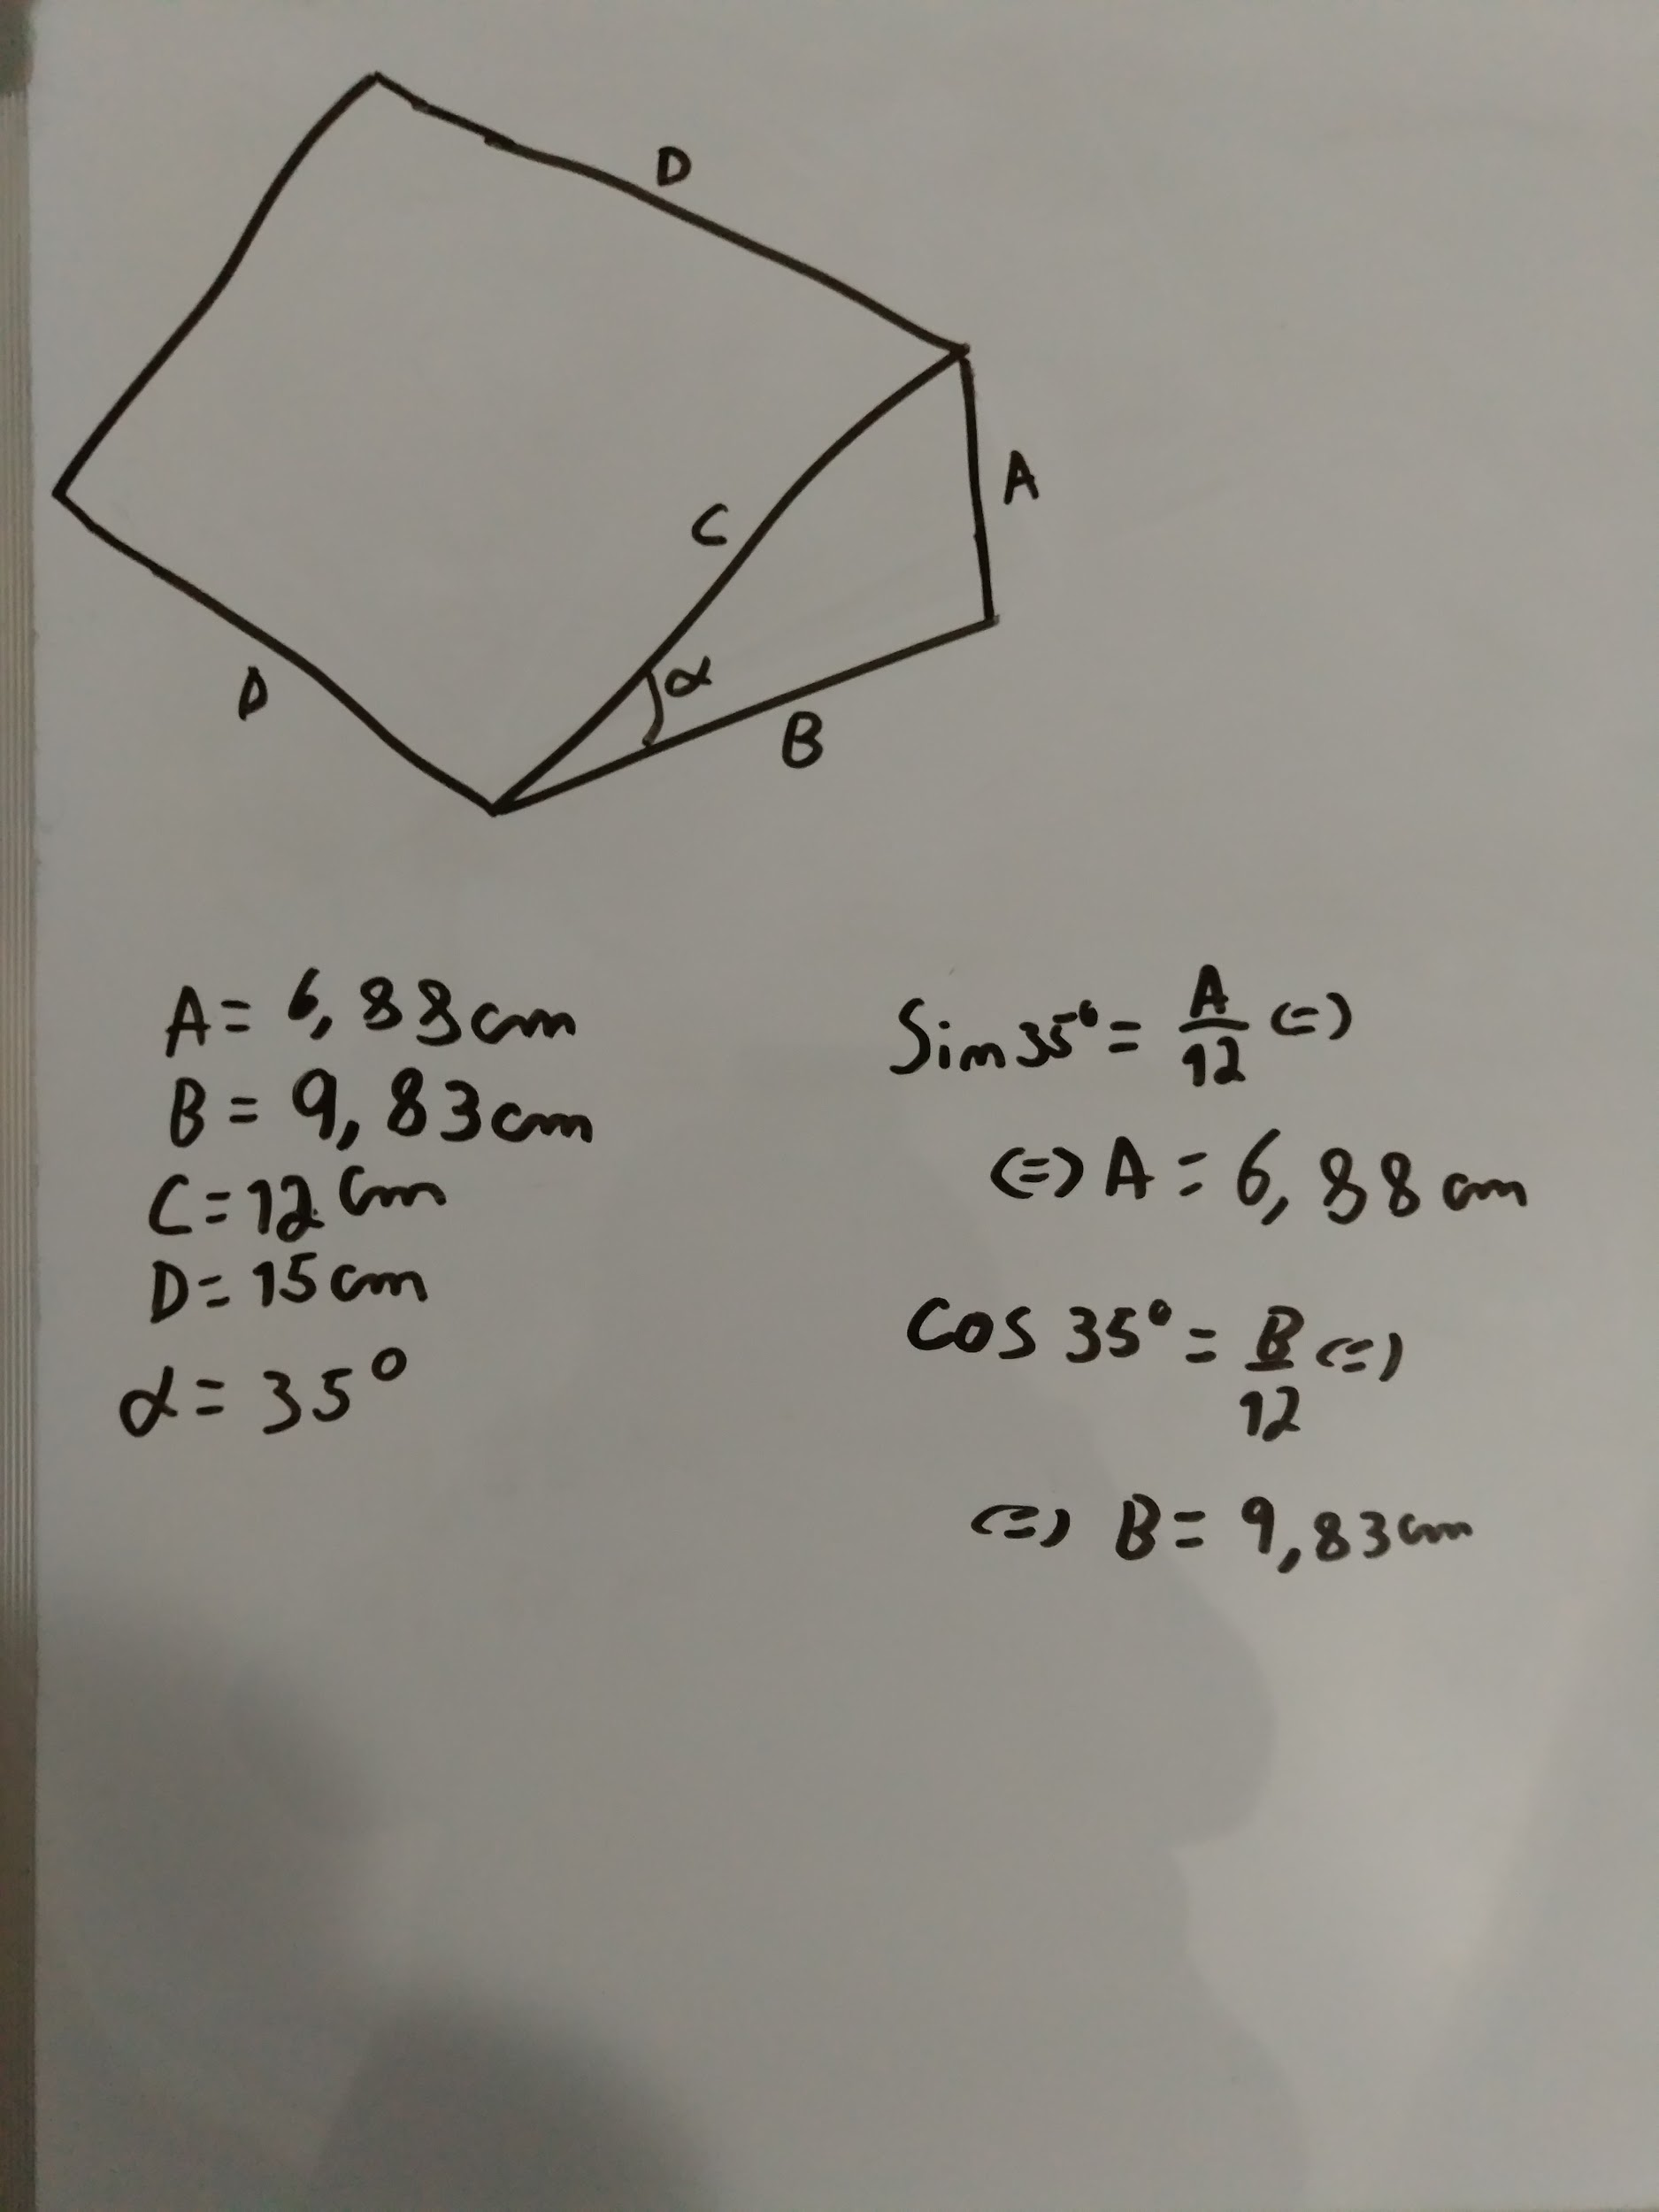 D
A
C
α
B
D
A = 6,88cm
B = 9,83cm
C = 12 cm
D = 15 cm
α = 35°
Sim 35° = A/12 (=)
(=) A = 6,88 cm
cos 35° = B/12 (=)
(=) B = 9,83cm